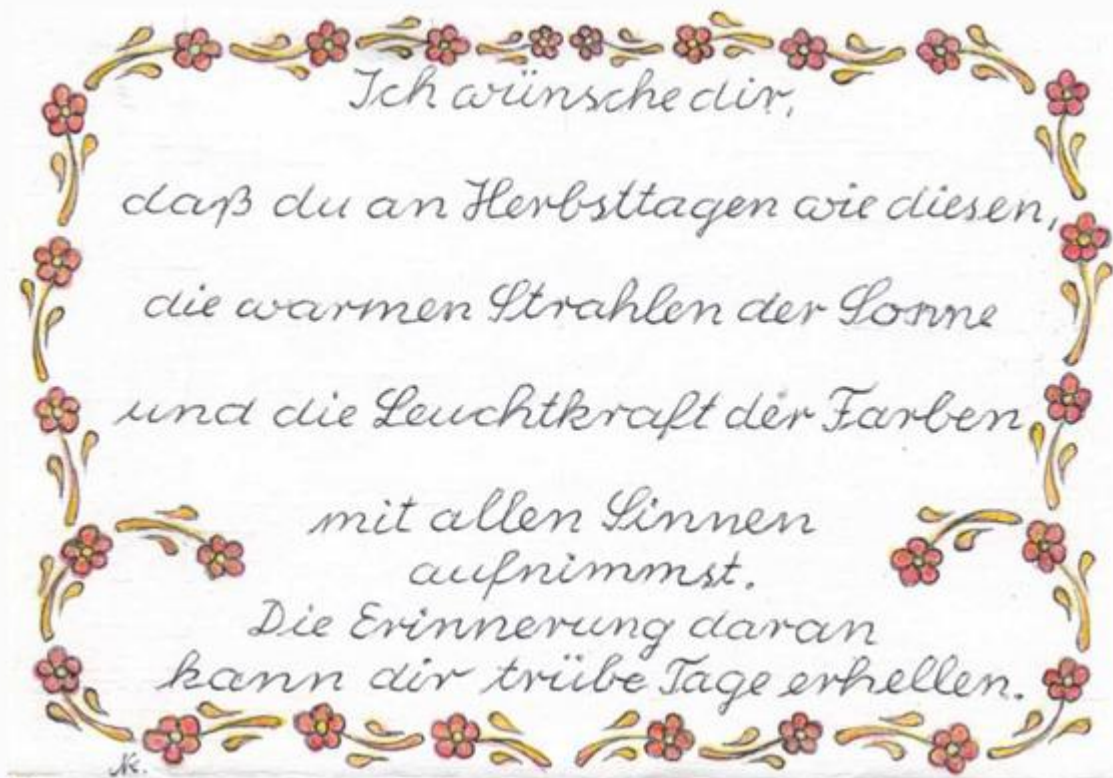 Ich wünsche dir,
daß du an Herbsttagen wie diesen,
die warmen Strahlen der Sonne
und die Leuchtkraft der Farben
mit allen Sinnen
aufnimmst.
Die Erinnerung daran
kann dir trübe Tage erhellen.